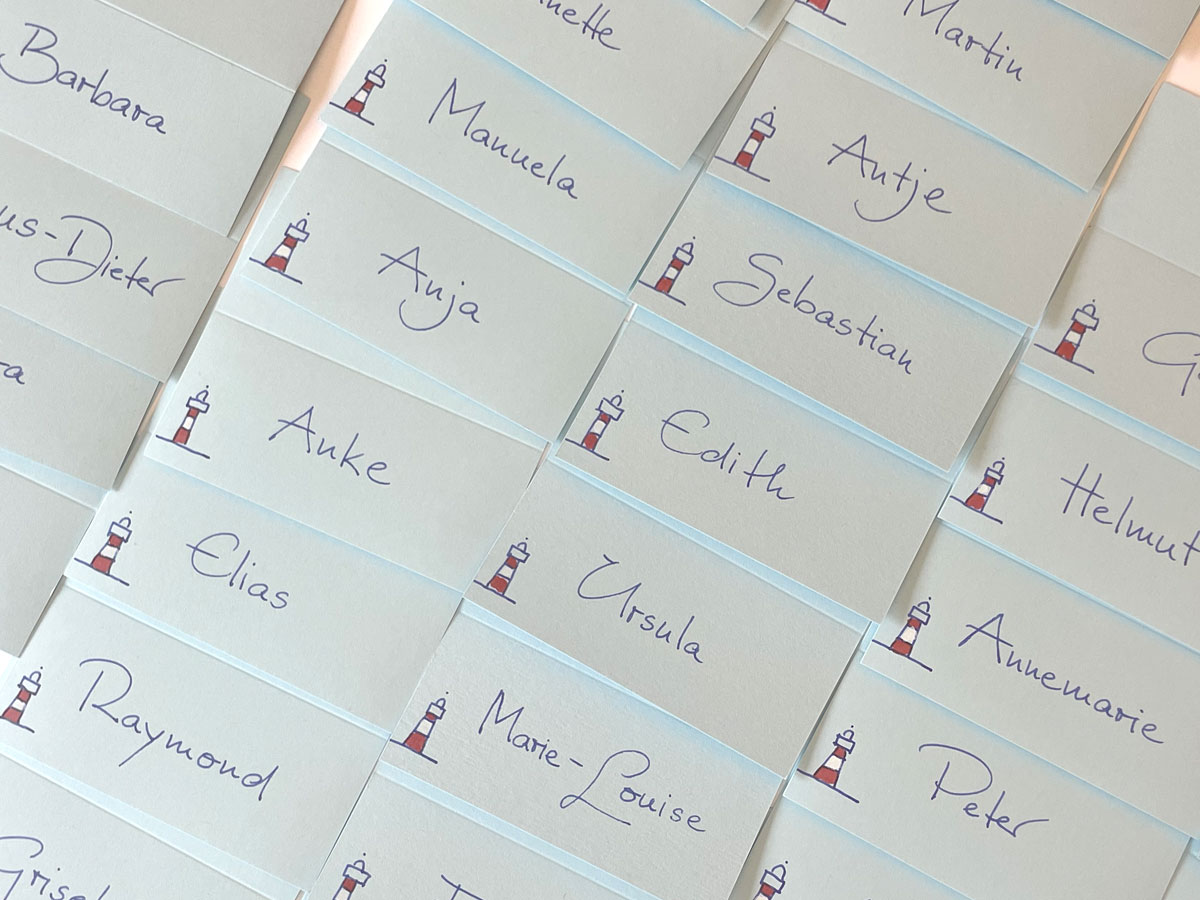 Barbara
us-Dieter
ra
nette
Manuela
Anja
Anke
Elias
Raymond
Grisel
Martin
Antje
Sebastian
Edith
Ursula
Marie-Louise
G
Helmut
Annemarie
Peter